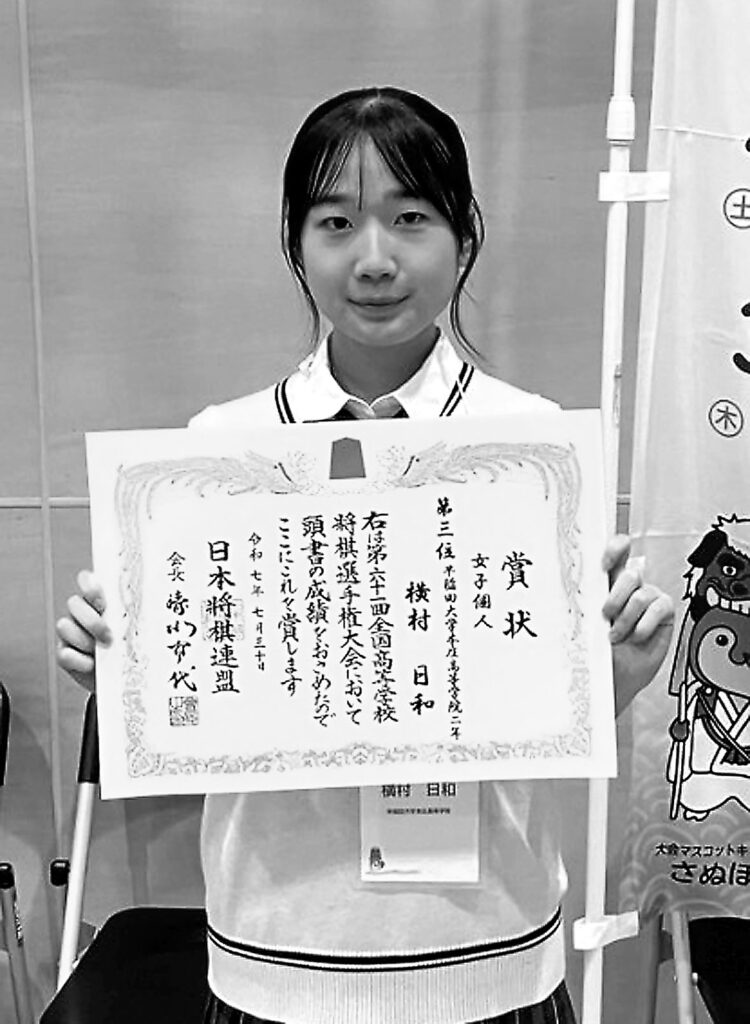 賞状
女子個人
第三位 早稲田大学本庄高等学院二年
横村 日和
右は第六十一回全国高等学校
将棋選手権大会において
頭書の成績をおさめたので
ここにこれを賞します
令和七年七月三十日
日本将棋連盟
会長
横村 日和
早稲田大学本庄高等学院
土
木
大会マスコットキ
さぬぽ